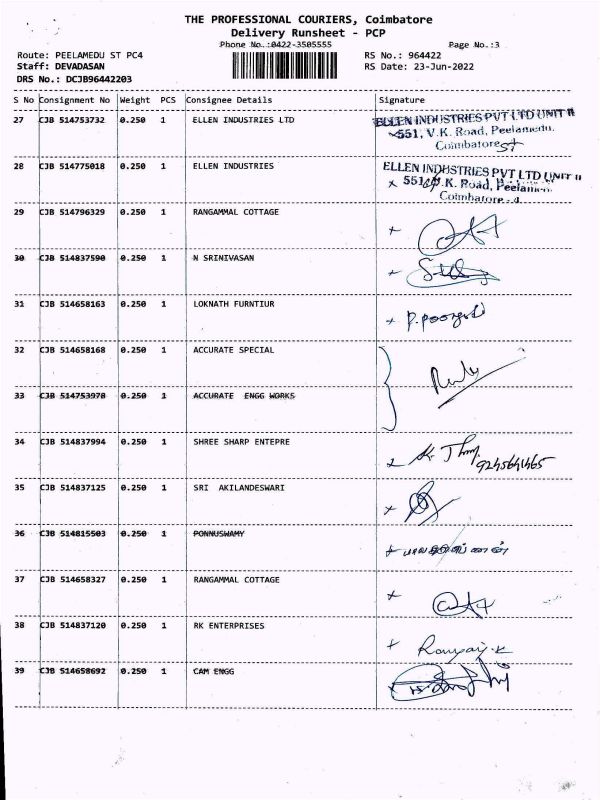 THE PROFESSIONAL COURIERS, Coimbatore
Delivery Runsheet - PCP
Phone No.:0422-3505555
Page No.:3
Route: PEELAMEDU ST PC4
RS No.: 964422
Staff: DEVADASAN
RS Date: 23-Jun-2022
DRS No.: DCJB96442203
S No Consignment No Weight PCS Consignee Details Signature
27 CJB 514753732 0.250 1 ELLEN INDUSTRIES LTD
ELLEN INDUSTRIES PVT LTD UNIT II
551, V.K. Road, Peelamedu.
Coimbatore
28 CJB 514775018 0.250 1 ELLEN INDUSTRIES
ELLEN INDUSTRIES PVT LTD UNIT II
551, V.K. Road, Peelamedu
Coimbatore - 4.
29 CJB 514796329 0.250 1 RANGAMMAL COTTAGE
30 CJB 514837590 0.250 1 N SRINIVASAN
31 CJB 514658163 0.250 1 LOKNATH FURNTIUR
32 CJB 514658168 0.250 1 ACCURATE SPECIAL
33 CJB 514753978 0.250 1 ACCURATE ENGG WORKS
34 CJB 514837994 0.250 1 SHREE SHARP ENTEPRE
35 CJB 514837125 0.250 1 SRI AKILANDESWARI
36 CJB 514815503 0.250 1 PONNUSWAMY
37 CJB 514658327 0.250 1 RANGAMMAL COTTAGE
38 CJB 514837120 0.250 1 RK ENTERPRISES
39 CJB 514658692 0.250 1 CAM ENGG